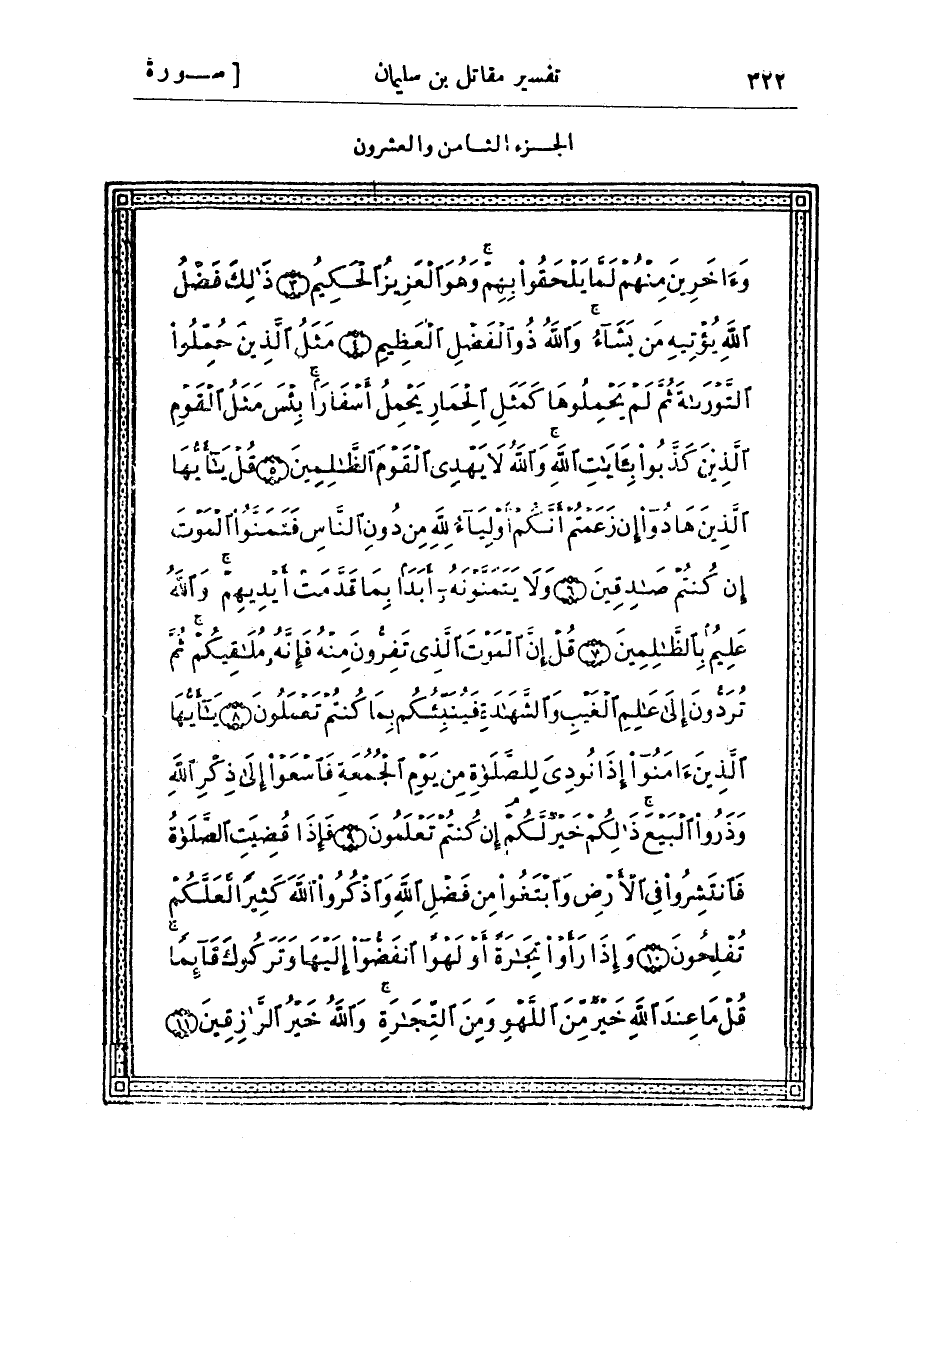 ٣٢٢ تفسير مقاتل بن سليمان [ سورة
الجزء الثامن والعشرون
وَءَاخَرِينَ مِنْهُمْ لَمَّا يَلْحَقُوا۟ بِهِمْ ۚ وَهُوَ ٱلْعَزِيزُ ٱلْحَكِيمُ ﴿٣﴾ ذَٰلِكَ فَضْلُ
ٱللَّهِ يُؤْتِيهِ مَن يَشَآءُ ۚ وَٱللَّهُ ذُو ٱلْفَضْلِ ٱلْعَظِيمِ ﴿٤﴾ مَثَلُ ٱلَّذِينَ حُمِّلُوا۟
ٱلتَّوْرَىٰةَ ثُمَّ لَمْ يَحْمِلُوهَا كَمَثَلِ ٱلْحِمَارِ يَحْمِلُ أَسْفَارًۢا ۚ بِئْسَ مَثَلُ ٱلْقَوْمِ
ٱلَّذِينَ كَذَّبُوا۟ بِـَٔايَـٰتِ ٱللَّهِ ۚ وَٱللَّهُ لَا يَهْدِى ٱلْقَوْمَ ٱلظَّـٰلِمِينَ ﴿٥﴾ قُلْ يَـٰٓأَيُّهَا
ٱلَّذِينَ هَادُوٓا۟ إِن زَعَمْتُمْ أَنَّكُمْ أَوْلِيَآءُ لِلَّهِ مِن دُونِ ٱلنَّاسِ فَتَمَنَّوُا۟ ٱلْمَوْتَ
إِن كُنتُمْ صَـٰدِقِينَ ﴿٦﴾ وَلَا يَتَمَنَّوْنَهُۥٓ أَبَدًۢا بِمَا قَدَّمَتْ أَيْدِيهِمْ ۚ وَٱللَّهُ
عَلِيمٌۢ بِٱلظَّـٰلِمِينَ ﴿٧﴾ قُلْ إِنَّ ٱلْمَوْتَ ٱلَّذِى تَفِرُّونَ مِنْهُ فَإِنَّهُۥ مُلَـٰقِيكُمْ ۖ ثُمَّ
تُرَدُّونَ إِلَىٰ عَـٰلِمِ ٱلْغَيْبِ وَٱلشَّهَـٰدَةِ فَيُنَبِّئُكُم بِمَا كُنتُمْ تَعْمَلُونَ ﴿٨﴾ يَـٰٓأَيُّهَا
ٱلَّذِينَ ءَامَنُوٓا۟ إِذَا نُودِىَ لِلصَّلَوٰةِ مِن يَوْمِ ٱلْجُمُعَةِ فَٱسْعَوْا۟ إِلَىٰ ذِكْرِ ٱللَّهِ
وَذَرُوا۟ ٱلْبَيْعَ ۚ ذَٰلِكُمْ خَيْرٌ لَّكُمْ إِن كُنتُمْ تَعْلَمُونَ ﴿٩﴾ فَإِذَا قُضِيَتِ ٱلصَّلَوٰةُ
فَٱنتَشِرُوا۟ فِى ٱلْأَرْضِ وَٱبْتَغُوا۟ مِن فَضْلِ ٱللَّهِ وَٱذْكُرُوا۟ ٱللَّهَ كَثِيرًا لَّعَلَّكُمْ
تُفْلِحُونَ ﴿١٠﴾ وَإِذَا رَأَوْا۟ تِجَـٰرَةً أَوْ لَهْوًا ٱنفَضُّوٓا۟ إِلَيْهَا وَتَرَكُوكَ قَآئِمًا ۚ
قُلْ مَا عِندَ ٱللَّهِ خَيْرٌ مِّنَ ٱللَّهْوِ وَمِنَ ٱلتِّجَـٰرَةِ ۚ وَٱللَّهُ خَيْرُ ٱلرَّٰزِقِينَ ﴿١١﴾